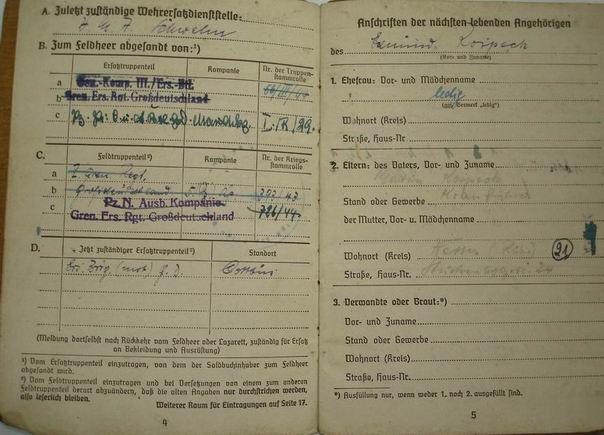 A. Zuletzt zuständige Wehrersatzdienststelle:
Schwelm
B. Zum Feldheer abgesandt von:¹)
Ersatztruppenteil Kompanie Nr. der Truppenstammrolle
a Gen.-Komp. III./Ers.-Btl.
b Gren. Ers. Rgt. Großdeutschland
c
C.
Feldtruppenteil²) Kompanie Nr. der Kriegsstammrolle
a
b Großdeutschland 393/43
c Pz. N. Ausb. Kompanie 726/44
Gren. Ers. Rgt. Großdeutschland
D. Jetzt zuständiger Ersatztruppenteil²) Standort
Ers. Brig. (mot) G. D. Cottbus
(Meldung dortselbst nach Rückkehr vom Feldheer oder Lazarett, zuständig für Ersatz
an Bekleidung und Ausrüstung)
¹) Vom Ersatztruppenteil einzutragen, von dem der Soldbuchinhaber zum Feldheer
abgesandt wird.
²) Vom Feldtruppenteil einzutragen und bei Versetzungen von einem zum anderen
Feldtruppenteil derart abzuändern, daß die alten Angaben nur durchstrichen werden,
also leserlich bleiben.
Weiterer Raum für Eintragungen auf Seite 17.
4
Anschriften der nächsten lebenden Angehörigen
des
(Vor- und Zuname)
1. Ehefrau: Vor- und Mädchenname
ledig
(ggf. Vermerk „ledig“)
Wohnort (Kreis)
Straße, Haus-Nr.
2. Eltern: des Vaters, Vor- und Zuname
Stand oder Gewerbe
der Mutter, Vor- u. Mädchenname
Wohnort (Kreis)
21
Straße, Haus-Nr. 24
3. Verwandte oder Braut:*)
Vor- und Zuname
Stand oder Gewerbe
Wohnort (Kreis)
Straße, Haus-Nr.
*) Ausfüllung nur, wenn weder 1. noch 2. ausgefüllt sind.
5